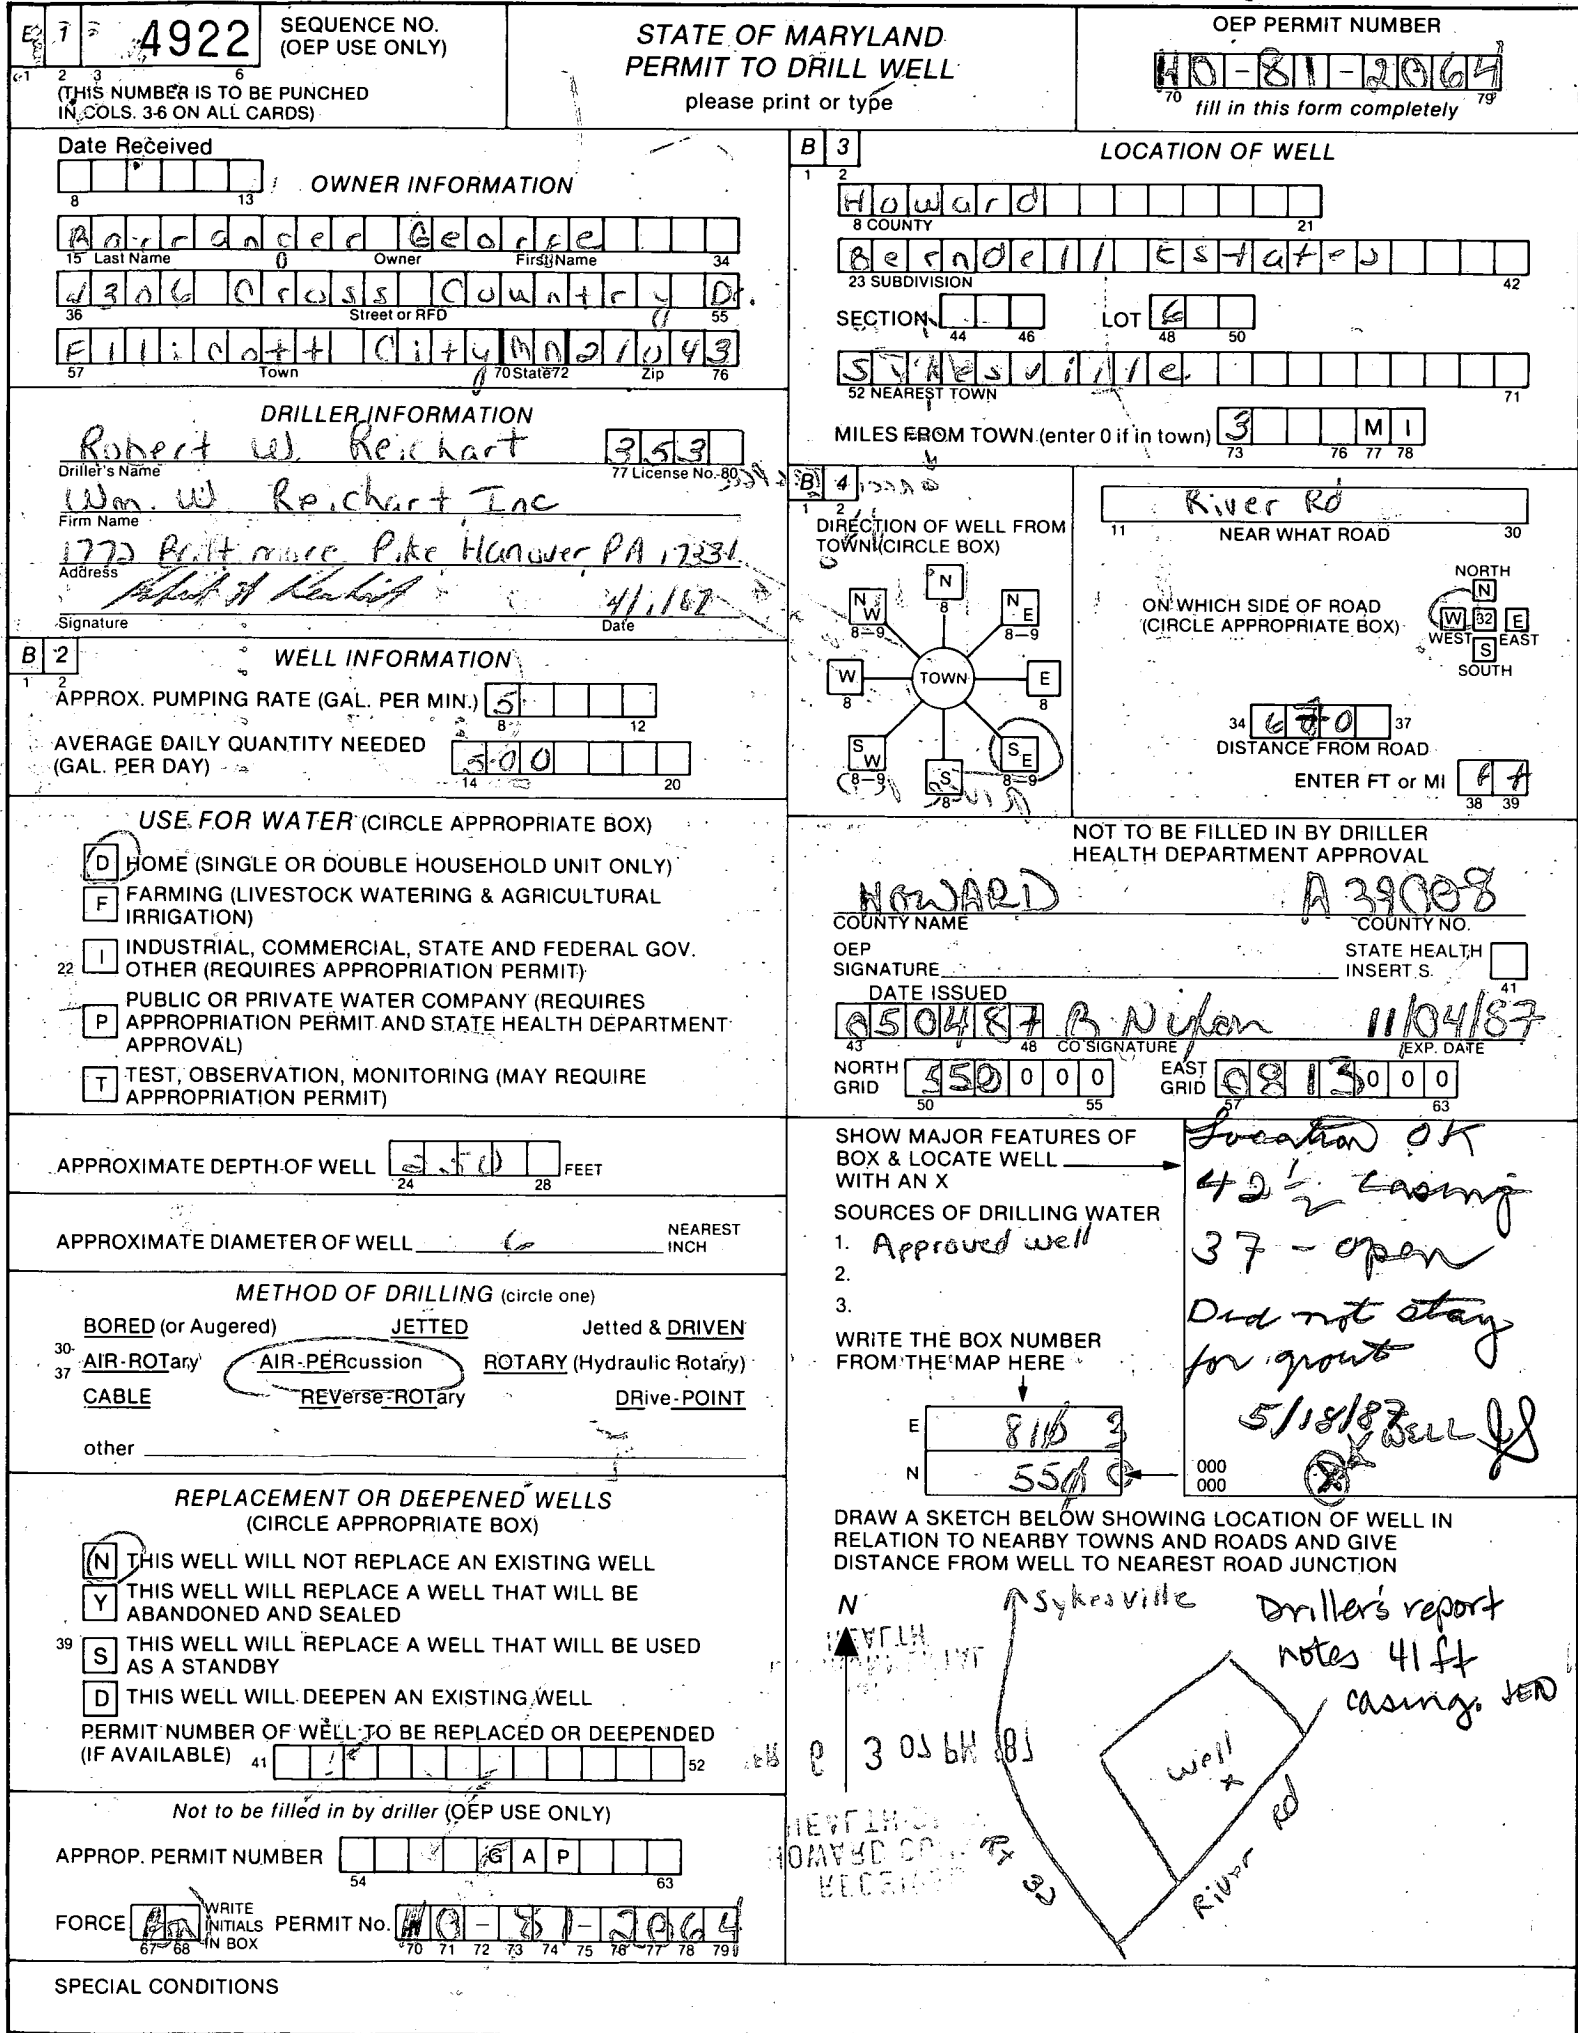 E 1 4922 SEQUENCE NO. (OEP USE ONLY)
1 2 3 6
(THIS NUMBER IS TO BE PUNCHED
IN COLS. 3-6 ON ALL CARDS)
STATE OF MARYLAND
PERMIT TO DRILL WELL
please print or type
OEP PERMIT NUMBER
HO-81-2064
70 79
fill in this form completely
Date Received
8 13
OWNER INFORMATION
George
15 Last Name Owner First Name 34
4306 Cross Country Dr.
36 Street or RFD 55
Ellicott City MD 21043
57 Town 70 State 72 Zip 76
DRILLER INFORMATION
Robert W. Reichart 353
Driller's Name 77 License No. 80
Wm. W. Reichart Inc
Firm Name
1772 Baltimore Pike Hanover PA 17331
Address
Signature Date
B 2 WELL INFORMATION
1 2
APPROX. PUMPING RATE (GAL. PER MIN.) 5
8 12
AVERAGE DAILY QUANTITY NEEDED
(GAL. PER DAY) 500
14 20
USE FOR WATER (CIRCLE APPROPRIATE BOX)
D HOME (SINGLE OR DOUBLE HOUSEHOLD UNIT ONLY)
F FARMING (LIVESTOCK WATERING & AGRICULTURAL
IRRIGATION)
I INDUSTRIAL, COMMERCIAL, STATE AND FEDERAL GOV.
22 OTHER (REQUIRES APPROPRIATION PERMIT)
P PUBLIC OR PRIVATE WATER COMPANY (REQUIRES
APPROPRIATION PERMIT AND STATE HEALTH DEPARTMENT
APPROVAL)
T TEST, OBSERVATION, MONITORING (MAY REQUIRE
APPROPRIATION PERMIT)
APPROXIMATE DEPTH OF WELL 250 FEET
24 28
APPROXIMATE DIAMETER OF WELL 6 NEAREST
INCH
METHOD OF DRILLING (circle one)
BORED (or Augered) JETTED Jetted & DRIVEN
30-
37 AIR-ROTary AIR-PERcussion ROTARY (Hydraulic Rotary)
CABLE REVerse-ROTary DRive-POINT
other
REPLACEMENT OR DEEPENED WELLS
(CIRCLE APPROPRIATE BOX)
N THIS WELL WILL NOT REPLACE AN EXISTING WELL
Y THIS WELL WILL REPLACE A WELL THAT WILL BE
ABANDONED AND SEALED
39 S THIS WELL WILL REPLACE A WELL THAT WILL BE USED
AS A STANDBY
D THIS WELL WILL DEEPEN AN EXISTING WELL
PERMIT NUMBER OF WELL TO BE REPLACED OR DEEPENED
(IF AVAILABLE) 41 52
Not to be filled in by driller (OEP USE ONLY)
APPROP. PERMIT NUMBER G A P
54 63
FORCE WRITE INITIALS IN BOX PERMIT No. HO-81-2064
67 68 70 71 72 73 74 75 76 77 78 79
SPECIAL CONDITIONS
B 3 LOCATION OF WELL
1 2
Howard
8 COUNTY 21
Berndell Estates
23 SUBDIVISION 42
SECTION LOT 6
44 46 48 50
Sykesville
52 NEAREST TOWN 71
MILES FROM TOWN (enter 0 if in town) 3 M I
73 76 77 78
B 4
1 2
DIRECTION OF WELL FROM
TOWN (CIRCLE BOX)
N 8
N W 8-9
N E 8-9
W 8
TOWN
E 8
S W 8-9
S 8
S E 8-9
River Rd
11 NEAR WHAT ROAD 30
ON WHICH SIDE OF ROAD
(CIRCLE APPROPRIATE BOX)
NORTH
N
W 32 E
WEST EAST
S
SOUTH
34 37
DISTANCE FROM ROAD
ENTER FT or MI ft
38 39
NOT TO BE FILLED IN BY DRILLER
HEALTH DEPARTMENT APPROVAL
HOWARD A 39008
COUNTY NAME COUNTY NO.
OEP
SIGNATURE
STATE HEALTH
INSERT S.
41
DATE ISSUED
050487 B. Nixon 11/04/87
43 48 CO SIGNATURE EXP. DATE
NORTH
GRID 550 0 0 0
50 55
EAST
GRID 0813 0 0 0
57 63
SHOW MAJOR FEATURES OF
BOX & LOCATE WELL
WITH AN X
SOURCES OF DRILLING WATER
1. Approved well
2.
3.
WRITE THE BOX NUMBER
FROM THE MAP HERE
E 81 3
N 55 0
000
000
Location OK
42 1/2 casing
37 - open
Did not stay
for grout
5/18/87 JS
WELL
X
DRAW A SKETCH BELOW SHOWING LOCATION OF WELL IN
RELATION TO NEARBY TOWNS AND ROADS AND GIVE
DISTANCE FROM WELL TO NEAREST ROAD JUNCTION
N
Sykesville
Driller's report
notes 41 ft
casing. JED
well
x
Rt 32
River Rd